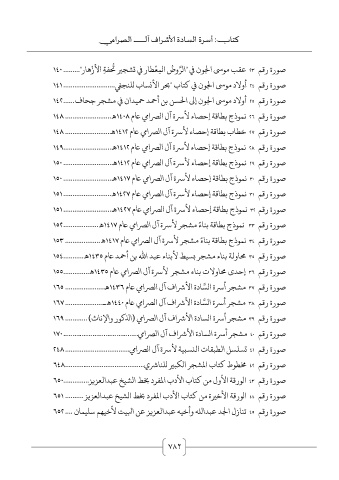 كتاب: أسرة السادة الأشراف آل الصرامي
صورة رقم ٢٣ عقب موسى الجون في "الرَّوضُ المِعْطار في تشجير تُحفَةِ الأزْهار" ......... ١٤٠
صورة رقم ٢٤ أولاد موسى الجون في كتاب "بحر الأنساب للنجفي ......... ١٤١
صورة رقم ٢٥ أولاد موسى الجون إلى الحسن بن أحمد حميدان في مشجر جحاف ..... ١٤٢
صورة رقم ٢٦ نموذج بطاقة إحصاء لأسرة آل الصرامي عام ١٤٠٨هـ ......... ١٤٨
صورة رقم ٢٧ خطاب بطاقة إحصاء لأسرة آل الصرامي عام ١٤١٢هـ ......... ١٤٨
صورة رقم ٢٨ نموذج بطاقة إحصاء لأسرة آل الصرامي عام ١٤١٢هـ ......... ١٤٩
صورة رقم ٢٩ نموذج بطاقة إحصاء لأسرة آل الصرامي عام ١٤١٢هـ ......... ١٥٠
صورة رقم ٣٠ نموذج بطاقة إحصاء لأسرة آل الصرامي عام ١٤١٧هـ ......... ١٥٠
صورة رقم ٣١ نموذج بطاقة إحصاء لأسرة آل الصرامي عام ١٤٢٧هـ ......... ١٥١
صورة رقم ٣٢ نموذج بطاقة إحصاء لأسرة آل الصرامي عام ١٤٢٧هـ ......... ١٥١
صورة رقم ٣٣ نموذج بطاقة بناءً مشجر لأسرة آل الصرامي عام ١٤١٧هـ ......... ١٥٢
صورة رقم ٣٤ نموذج بطاقة بناءً مشجر لأسرة آل الصرامي عام ١٤١٧هـ ......... ١٥٣
صورة رقم ٣٥ محاولة بناء مشجر بسيط لأبناء عبد الله بن أحمد عام ١٤٣٥هـ ......... ١٥٤
صورة رقم ٣٦ إحدى محاولات بناء مشجر لأسرة آل الصرامي عام ١٤٣٥هـ ......... ١٥٥
صورة رقم ٣٧ مشجر أسرة السَّادة الأشراف آل الصرامي عام ١٤٣٦هـ ......... ١٦٥
صورة رقم ٣٨ مشجر أسرة السَّادة الأشراف آل الصرامي عام ١٤٤٠هـ ......... ١٦٧
صورة رقم ٣٩ مشجر أسرة السادة الأشراف آل الصرامي (الذكور والإناث) ......... ١٦٩
صورة رقم ٤٠ مشجر أسرة السادة الأشراف آل الصرامي ......... ١٧٠
صورة رقم ٤١ تسلسل الطبقات النسبية لأسرة آل الصرامي ......... ٢٤٨
صورة رقم ٤٢ مخطوط كتاب المشجر الكبير للناشري ......... ٦٤٨
صورة رقم ٤٣ الورقة الأول من كتاب الأدب المفرد بخط الشيخ عبدالعزيز ......... ٦٥٠
صورة رقم ٤٤ الورقة الأخيرة من كتاب الأدب المفرد بخط الشيخ عبدالعزيز ......... ٦٥١
صورة رقم ٤٥ تنازل الجد عبدالله وأخيه عبدالعزيز عن البيت لأخيهم سليمان .... ٦٥٢
٧٨٢